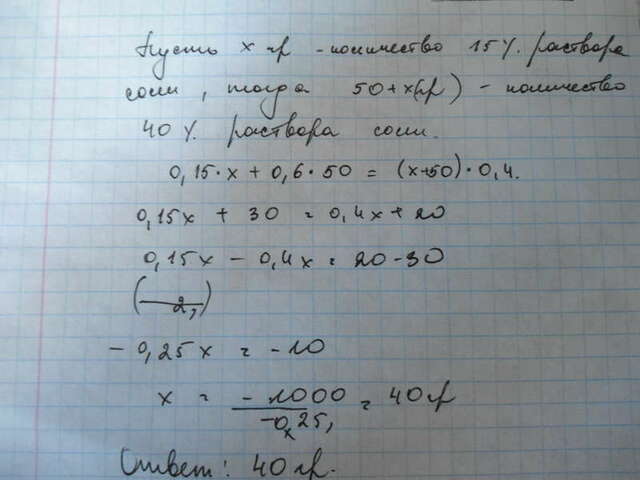 Пусть x гр - количество 15%. раствора
соли, тогда 50+x(гр) - количество
40%. раствора соли.
0,15·x + 0,6·50 = (x+50)·0,4.
0,15x + 30 = 0,4x + 20
0,15x - 0,4x = 20-30
- 0,25x = -10
x = -1000 / -0,25, = 40 гр
Ответ: 40 гр.